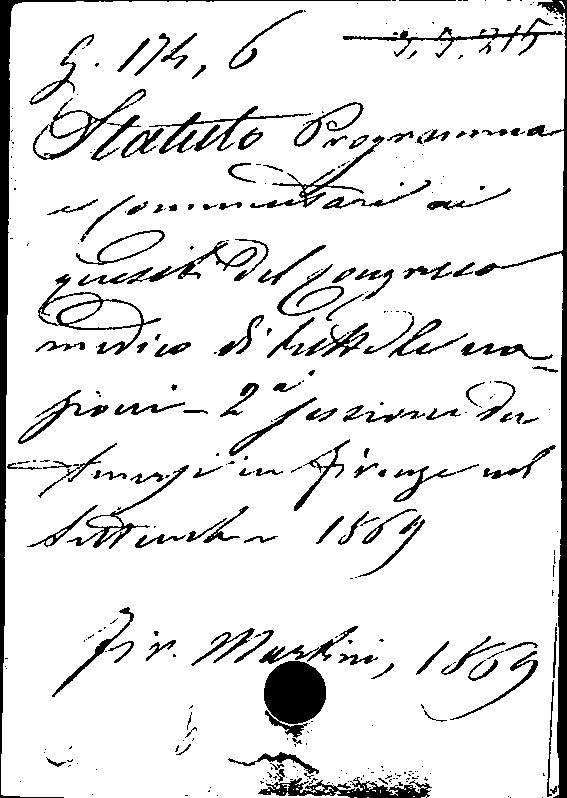 G. 174, 6
3, 5, 215
Statuto Programma
e Commentari ai
quesiti del Congresso
medico di tutte le na-
zioni - 2a sessione da
tenersi in Firenze nel
Settembre 1869
Fir. Martini, 1869